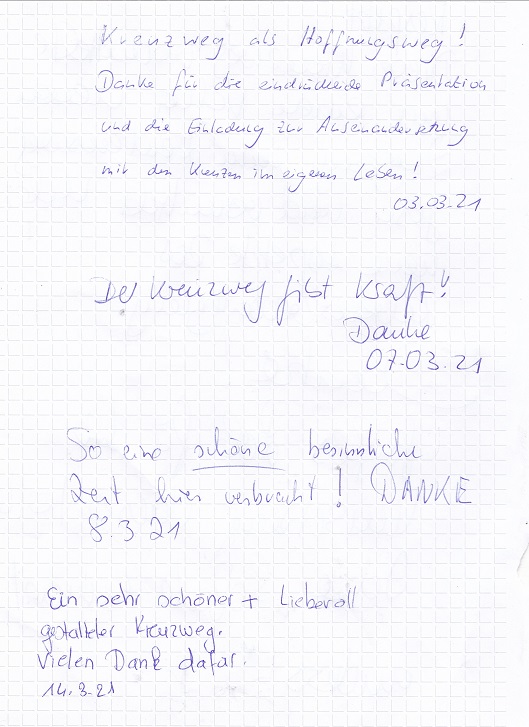 Kreuzweg als Hoffnungsweg!
Danke für die eindrückende Präsentation
und die Einladung zur Auseinandersetzung
mit den Kreuzen im eigenen Leben!
03.03.21
Der Kreuzweg gibt Kraft!
Danke
07.03.21
So eine schöne besinnliche
Zeit hier verbracht! DANKE
8.3 21
Ein sehr schöner + Liebevoll
gestalteter Kreuzweg.
Vielen Dank dafür.
14.3-21